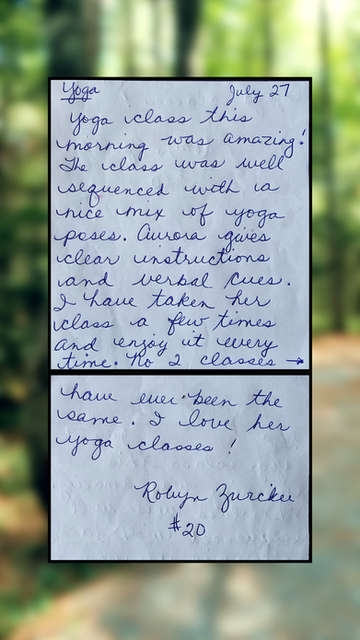 Yoga July 27
Yoga class this
morning was amazing!
The class was well
sequenced with a
nice mix of yoga
poses. Aurora gives
clear instructions
and verbal cues.
I have taken her
class a few times
and enjoy it every
time. No 2 classes →
have ever been the
same. I love her
yoga classes!
Robyn Zurcher
#20